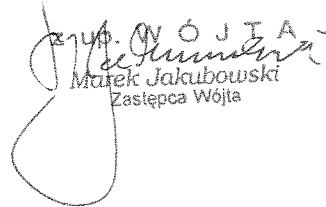 z up. W Ó J T A
Marek Jakubowski
Zastępca Wójta